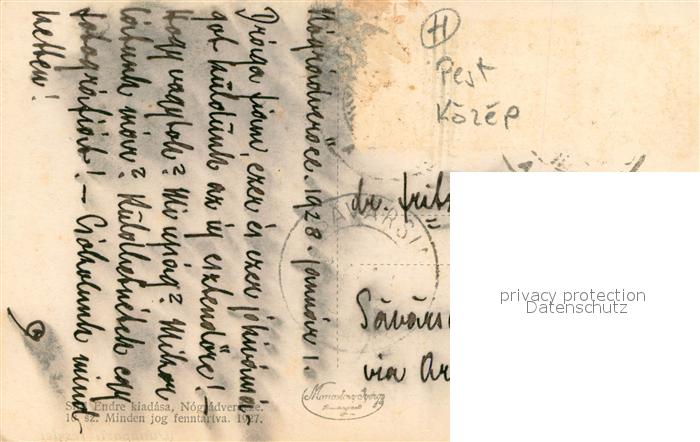 Nógrádverőce. 1928. január 1.
Drága fiam, ezer és ezer jókívánsá-
got küldünk az új esztendőre! –
Hogy vagytok? Mi újság? Mikor
látunk már? Küldhetnétek egy
fotográfiát! – Csókolunk mind-
ketten!
H
Pest
Közép
dr. Fritz
SAVARSI
Săvârs
via Ar
privacy protection
Datenschutz
Endre kiadása, Nógrádverőce.
sz. Minden jog fenntartva. 1927.